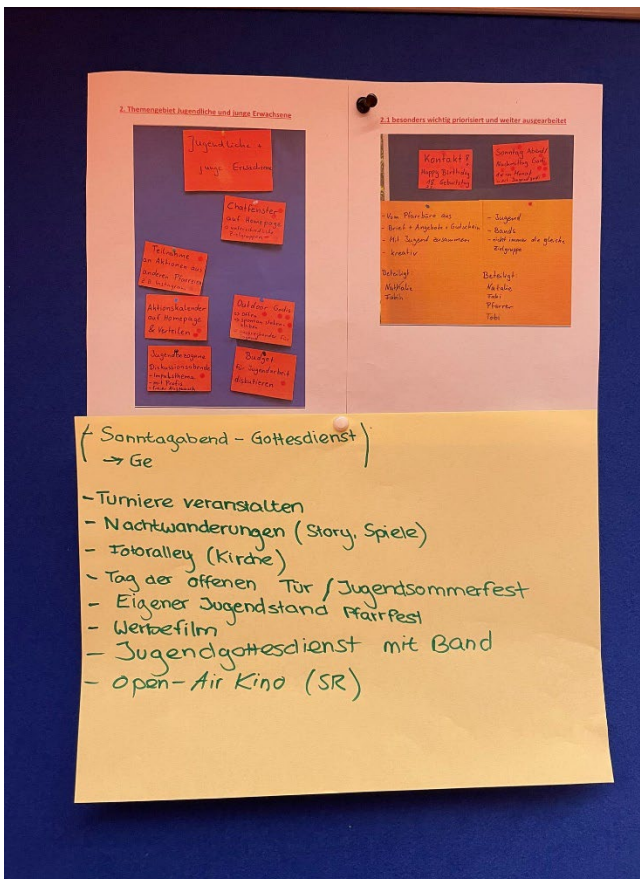 2. Themengebiet Jugendliche und junge Erwachsene
Jugendliche +
junge Erwachsene
Chatfenster
auf Homepage
Teilnahme
an Aktionen aus
anderen Pfarreien
Aktionskalender
auf Homepage
& Verteilen
Outdoor
Jugendbezogene
Diskussionsabende
- Impulsthema
Budget
für Jugendarbeit
diskutieren
2.1 besonders wichtig priorisiert und weiter ausgearbeitet
Kontakt
Happy Birthday
18. Geburtstag
Sonntag Abend/
Nachmittag
- Vom Pfarrbüro aus
- Brief + Angebote + Gutschein
- Mit Jugend zusammen
- kreativ
Beteiligt
Nathalie
- Jugend
- Bands
- nicht immer die gleiche
Zielgruppe
Beteiligt
Natalie
Tobi
Pfarrer
Tobi
(- Sonntagabend - Gottesdienst)
→ Ge
- Turniere veranstalten
- Nachtwanderungen (Story, Spiele)
- Fotoralley (Kirche)
- Tag der offenen Tür / Jugendsommerfest
- Eigener Jugendstand Pfarrfest
- Werbefilm
- Jugendgottesdienst mit Band
- Open-Air Kino (SR)